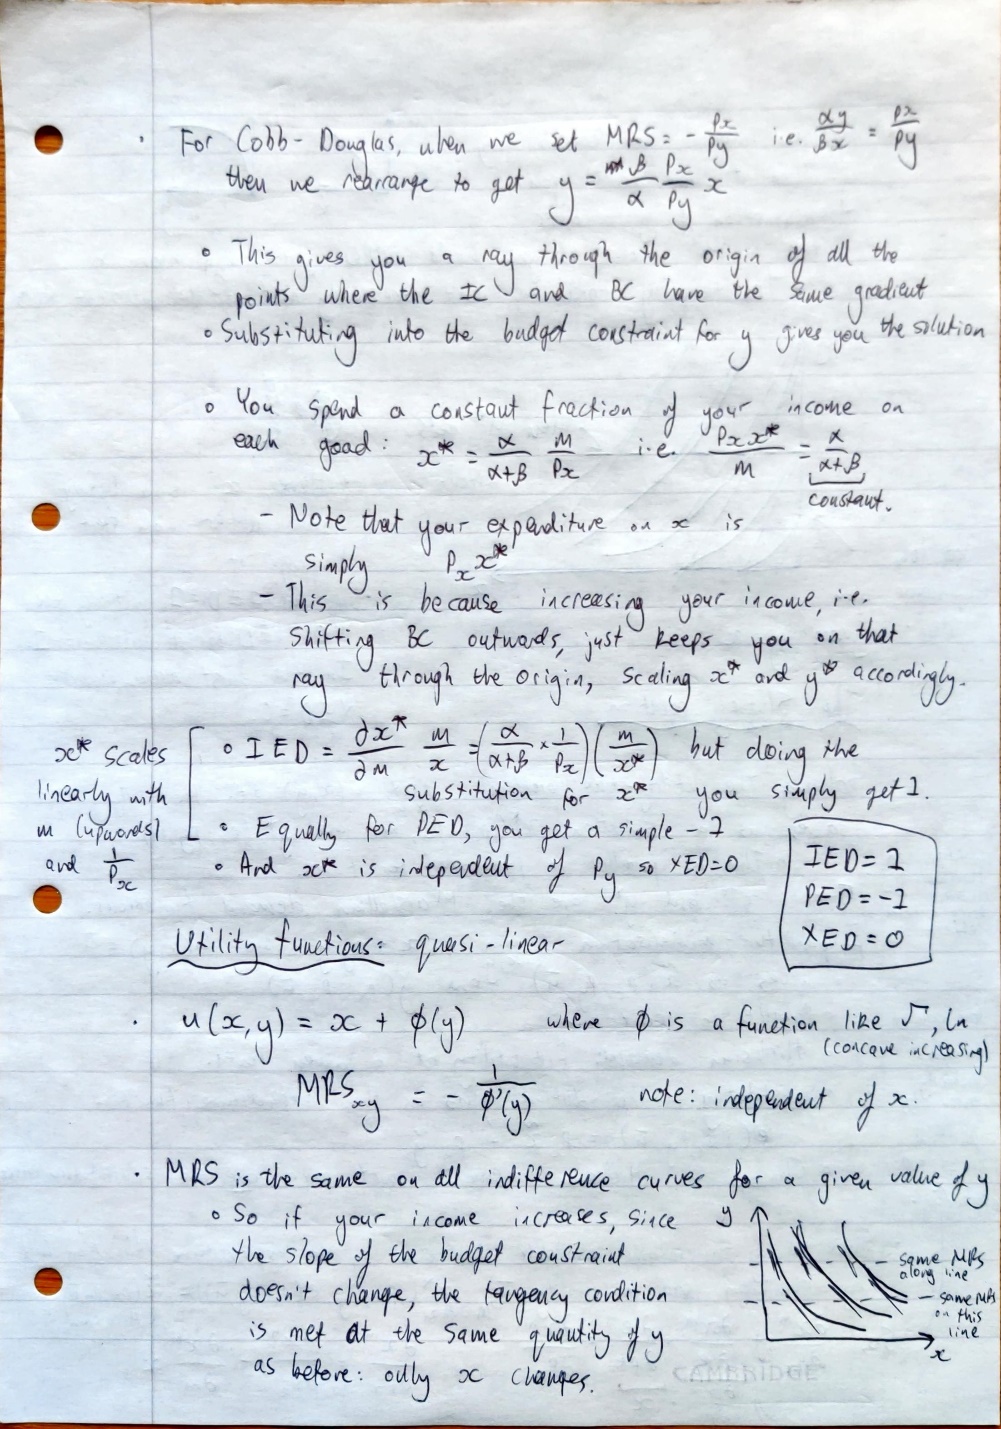 For Cobb-Douglas, when we set MRS = - Px/Py i.e. αy/βx = Px/Py
then we rearrange to get y = β/α Px/Py x
This gives you a ray through the origin of all the
points where the IC and BC have the same gradient
Substituting into the budget constraint for y gives you the solution
You spend a constant fraction of your income on
each good: x* = α/(α+β) m/Px i.e. Px x*/m = α/(α+β)
constant.
- Note that your expenditure on x is
simply Px x*
- This is because increasing your income, i.e.
shifting BC outwards, just keeps you on that
ray through the origin, scaling x* and y* accordingly.
x* scales
linearly with
m (upwards)
and 1/Px
IED = ∂x*/∂m m/x = (α/(α+β) × 1/Px)(m/x*) but doing the
substitution for x* you simply get 1.
Equally for PED, you get a simple -1
And x* is independent of Py so XED=0
IED = 1
PED = -1
XED = 0
Utility functions: quasi-linear
u(x,y) = x + ϕ(y) where ϕ is a function like √, ln
(concave increasing)
MRSxy = - 1/ϕ'(y) note: independent of x.
MRS is the same on all indifference curves for a given value of y
So if your income increases, since
the slope of the budget constraint
doesn't change, the tangency condition
is met at the same quantity of y
as before: only x changes.
y
same MRS
along line
same MRS
on this
line
x
CAMBRIDGE